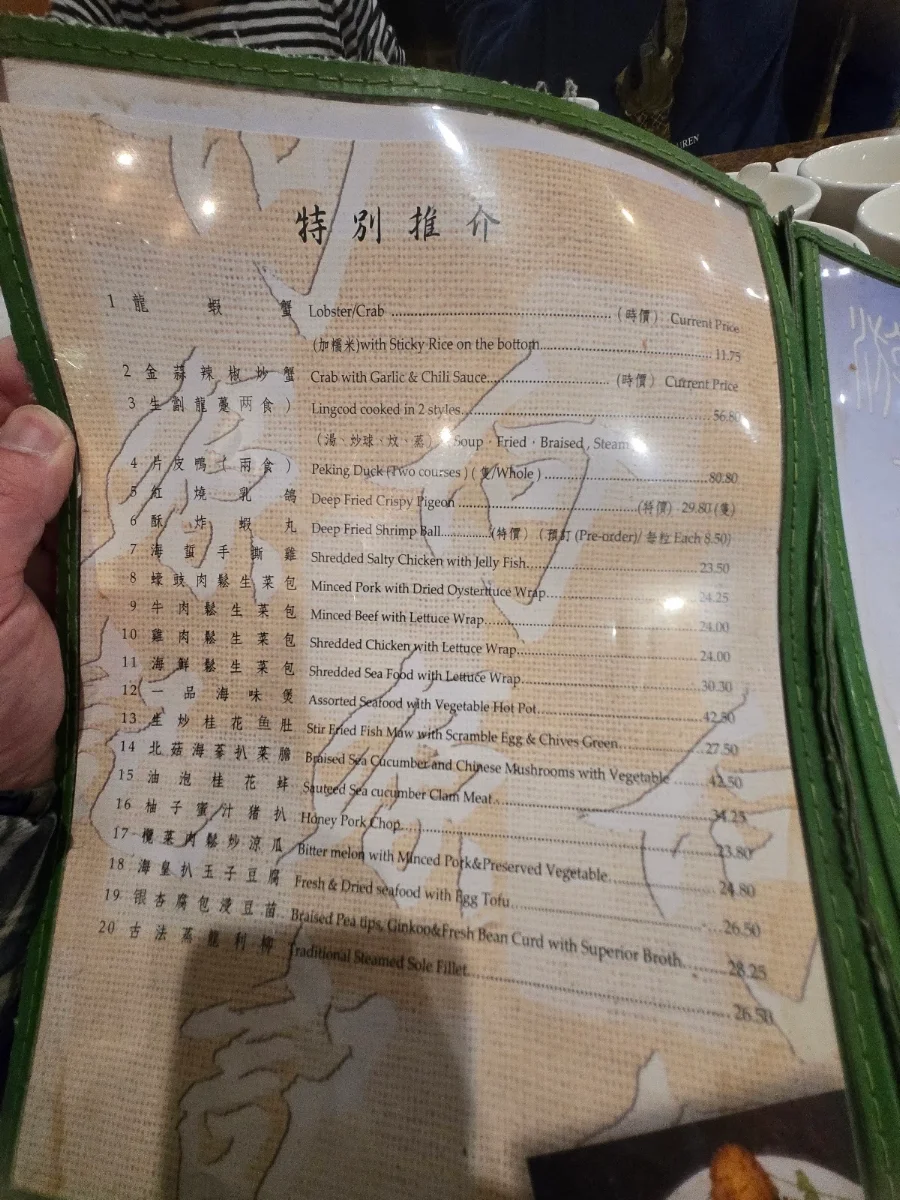 特別推介
1 龍蝦蟹 Lobster/Crab (時價) Current Price
(加糯米)with Sticky Rice on the bottom 11.75
2 金蒜辣椒炒蟹 Crab with Garlic & Chili Sauce (時價) Current Price
3 生劏龍躉两食) Lingcod cooked in 2 styles 56.80
(湯、炒球、炆、蒸) Soup · Fried · Braised , Steam
4 片皮鴨(兩食) Peking Duck (Two courses) (隻/Whole) 80.80
5 紅燒乳鴿 Deep Fried Crispy Pigeon (特價) 29.80 (隻)
6 酥炸蝦丸 Deep Fried Shrimp Ball (特價) (預訂 (Pre-order)/ 每粒 Each 8.50)
7 海蜇手撕雞 Shredded Salty Chicken with Jelly Fish 23.50
8 蠔豉肉鬆生菜包 Minced Pork with Dried Oysterttuce Wrap 24.25
9 牛肉鬆生菜包 Minced Beef with Lettuce Wrap 24.00
10 雞肉鬆生菜包 Shredded Chicken with Lettuce Wrap 24.00
11 海鮮鬆生菜包 Shredded Sea Food with Lettuce Wrap 30.30
12 一品海味煲 Assorted Seafood with Vegetable Hot Pot 42.50
13 生炒桂花鱼肚 Stir Fried Fish Maw with Scramble Egg & Chives Green 27.50
14 北菇海蔘扒菜膽 Braised Sea Cucumber and Chinese Mushrooms with Vegetable 42.50
15 油泡桂花蚌 Sauteed Sea cucumber Clam Meat 34.25
16 柚子蜜汁猪扒 Honey Pork Chop 23.80
17 欖菜肉鬆炒涼瓜 Bitter melon with Minced Pork&Preserved Vegetable 24.80
18 海皇扒玉子豆腐 Fresh & Dried seafood with Egg Tofu 26.50
19 银杏腐包浸豆苗 Braised Pea tips, Ginkoo&Fresh Bean Curd with Superior Broth 28.25
20 古法蒸龍利柳 Traditional Steamed Sole Fillet 26.50